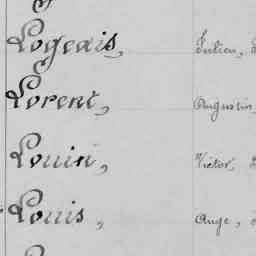 Logeais, Julien,
Lorent, Augustin,
Louin, Victor,
Louis, Ange,